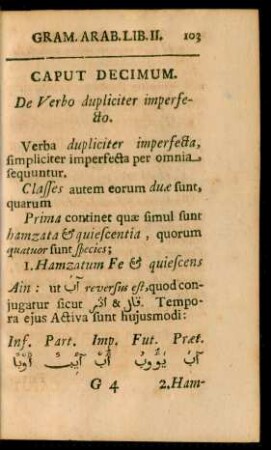 GRAM. ARAB. LIB. II. 103
CAPUT DECIMUM.
De Verbo dupliciter imperfe-
cto.
Verba dupliciter imperfecta,
simpliciter imperfecta per omnia
sequuntur.
Classes autem eorum duæ sunt,
quarum
Prima continet quæ simul sunt
hamzata & quiescentia, quorum
quatuor sunt species;
1. Hamzatum Fe & quiescens
Ain: ut آبَ reversus est, quod con-
jugatur sicut & قَالَ. Tempo-
ra ejus Activa sunt hujusmodi:
Inf. Part. Imp. Fut. Præt.
آبَ يَؤُوبُ أُبْ آيِبٌ أَوْبًا
G 4 2. Ham-